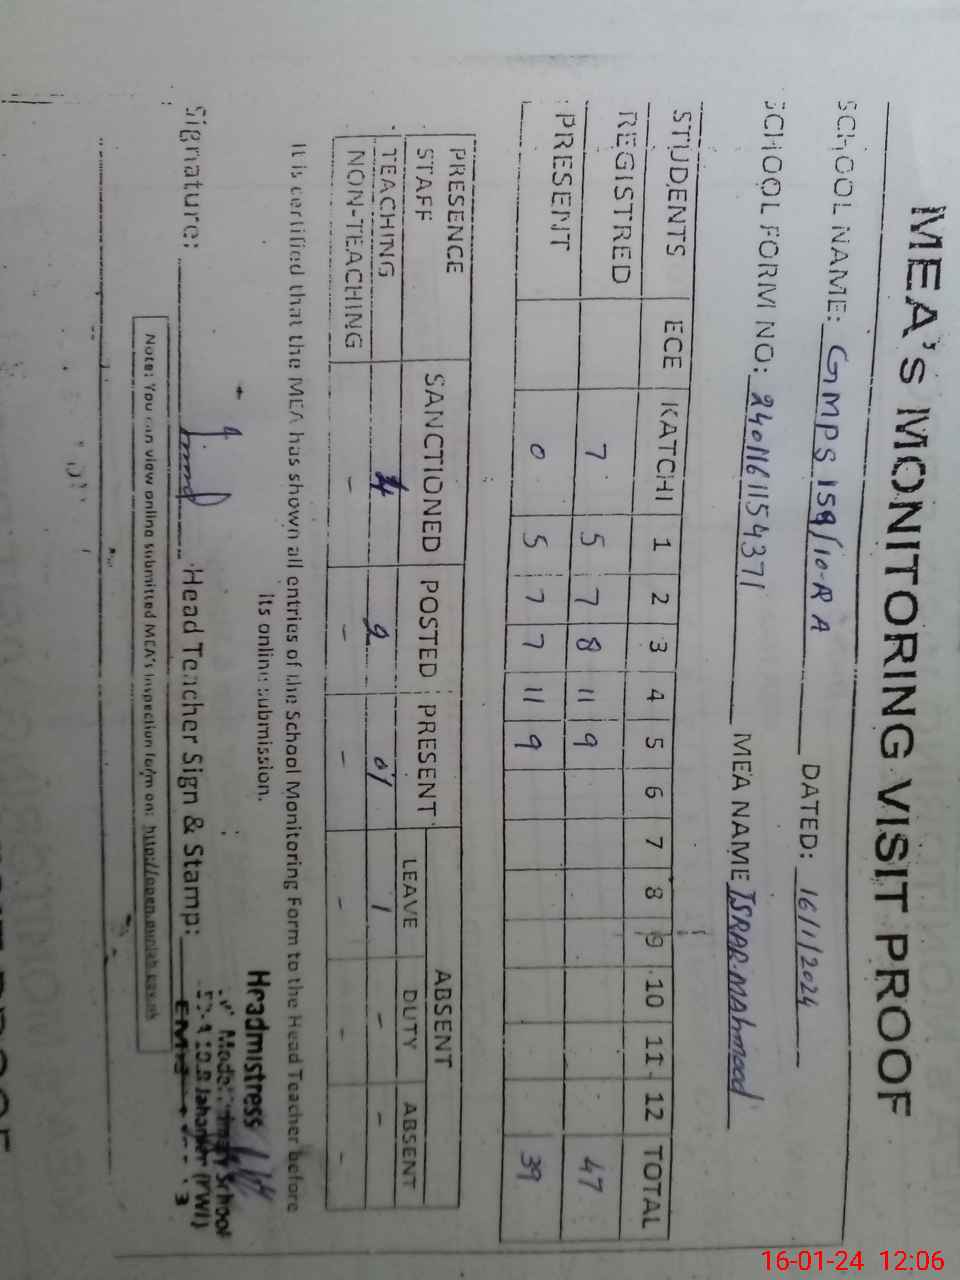 MEA's MONITORING VISIT PROOF
SCHOOL NAME: GMPS 159/10-R A DATED: 16/1/2024
SCHOOL FORM NO: 2401161154371 MEA NAME ISRAR MAhmood
STUDENTS ECE KATCHI 1 2 3 4 5 6 7 8 9 10 11 12 TOTAL
REGISTRED 7 5 7 8 11 9 47
PRESENT 0 5 7 7 11 9 39
PRESENCE STAFF SANCTIONED POSTED PRESENT ABSENT
LEAVE DUTY ABSENT
TEACHING 4 2 01 1 - -
NON-TEACHING - - - - - -
It is certified that the MEA has shown all entries of the School Monitoring Form to the Head Teacher before
its online submission.
Headmistress
Signature: Head Teacher Sign & Stamp:
Note: You can view online submitted MEA's Inspection form on: http://open.punjab.gov.pk
16-01-24 12:06